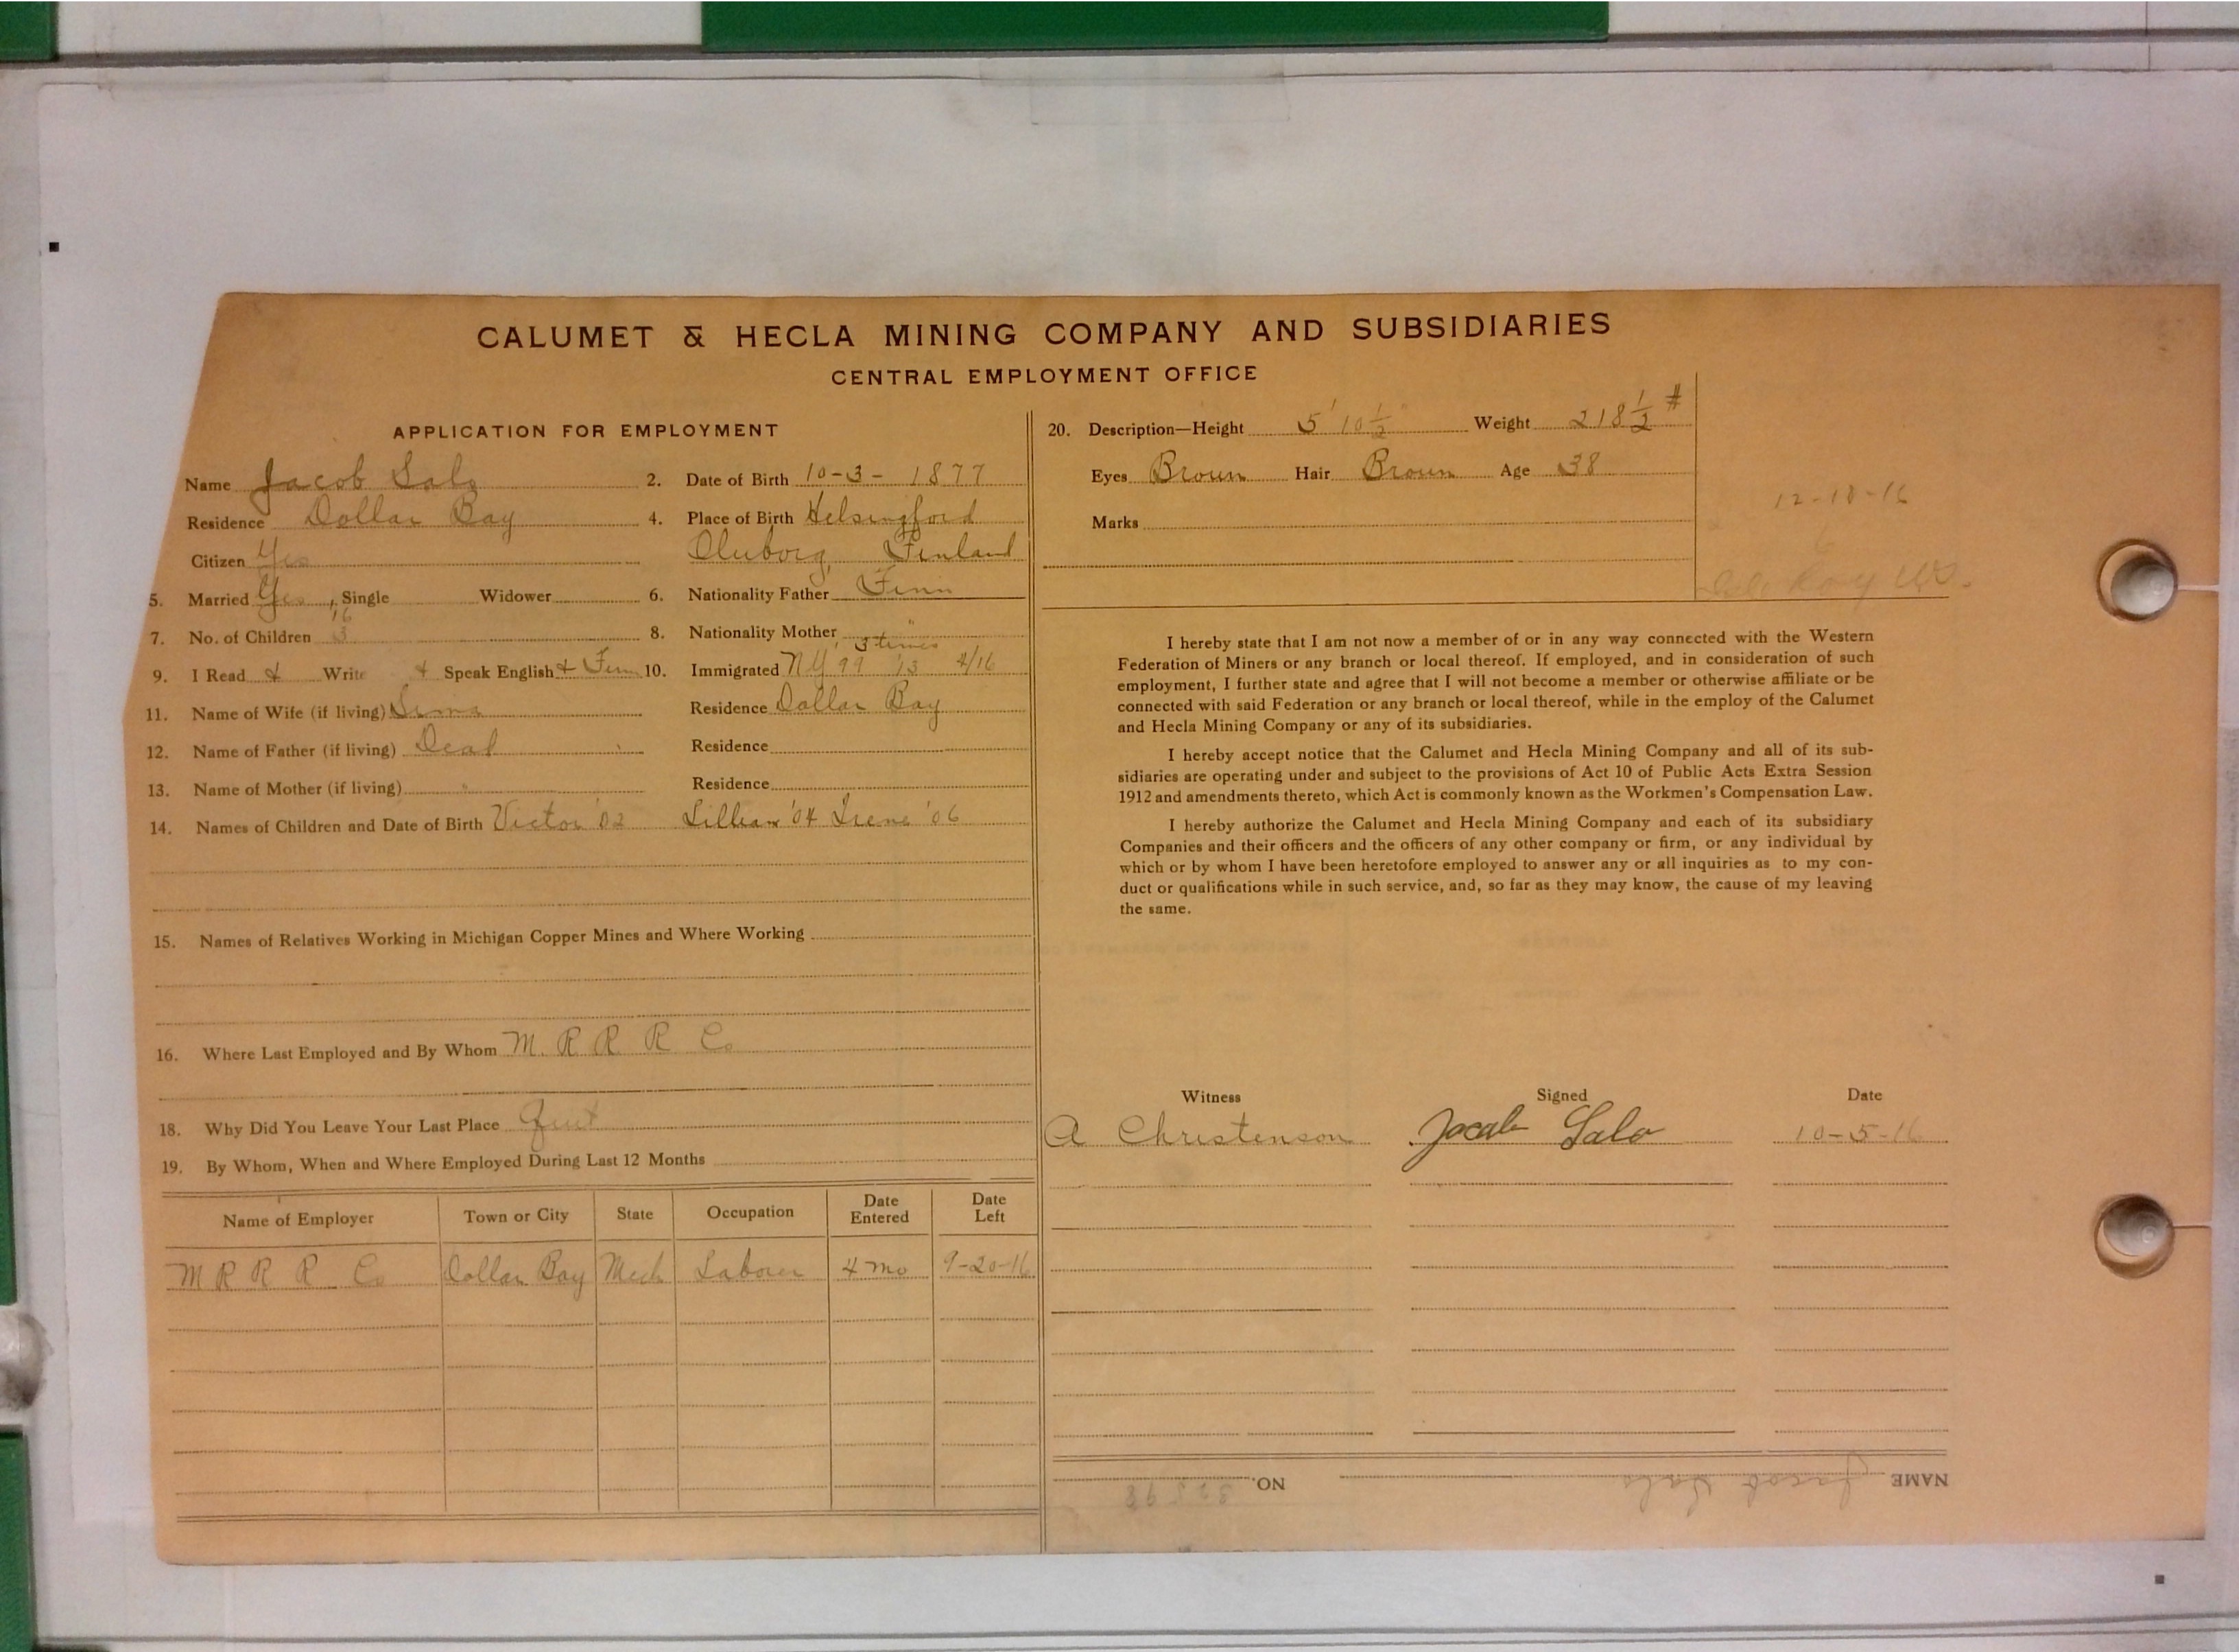 CALUMET & HECLA MINING COMPANY AND SUBSIDIARIES
CENTRAL EMPLOYMENT OFFICE
APPLICATION FOR EMPLOYMENT
Name Jacob Salo 2. Date of Birth 10-3-1877
Residence Dollar Bay 4. Place of Birth Helsingford
Citizen Yes Finland
5. Married Yes, Single Widower 6. Nationality Father Finn
7. No. of Children 3 8. Nationality Mother "
3 times
9. I Read & Write & Speak English & Finn 10. Immigrated NY 99 '13 4/16
11. Name of Wife (if living) Residence Dollar Bay
12. Name of Father (if living) Dead Residence
13. Name of Mother (if living) " Residence
14. Names of Children and Date of Birth Victor '02 Lillian '04 Irene '06
15. Names of Relatives Working in Michigan Copper Mines and Where Working
16. Where Last Employed and By Whom M. R R R Co
18. Why Did You Leave Your Last Place Quit
19. By Whom, When and Where Employed During Last 12 Months
Name of Employer Town or City State Occupation Date Entered Date Left
M R R R Co Dollar Bay Mich Laborer 4 mo 9-20-16
20. Description—Height 5' 10 1/2" Weight 218 1/2 #
Eyes Broun Hair Broun Age 38
Marks
12-18-16
I hereby state that I am not now a member of or in any way connected with the Western
Federation of Miners or any branch or local thereof. If employed, and in consideration of such
employment, I further state and agree that I will not become a member or otherwise affiliate or be
connected with said Federation or any branch or local thereof, while in the employ of the Calumet
and Hecla Mining Company or any of its subsidiaries.
I hereby accept notice that the Calumet and Hecla Mining Company and all of its sub-
sidiaries are operating under and subject to the provisions of Act 10 of Public Acts Extra Session
1912 and amendments thereto, which Act is commonly known as the Workmen's Compensation Law.
I hereby authorize the Calumet and Hecla Mining Company and each of its subsidiary
Companies and their officers and the officers of any other company or firm, or any individual by
which or by whom I have been heretofore employed to answer any or all inquiries as to my con-
duct or qualifications while in such service, and, so far as they may know, the cause of my leaving
the same.
Witness Signed Date
A Christenson Jacob Salo 10-5-16
NAME Jacob Salo NO.